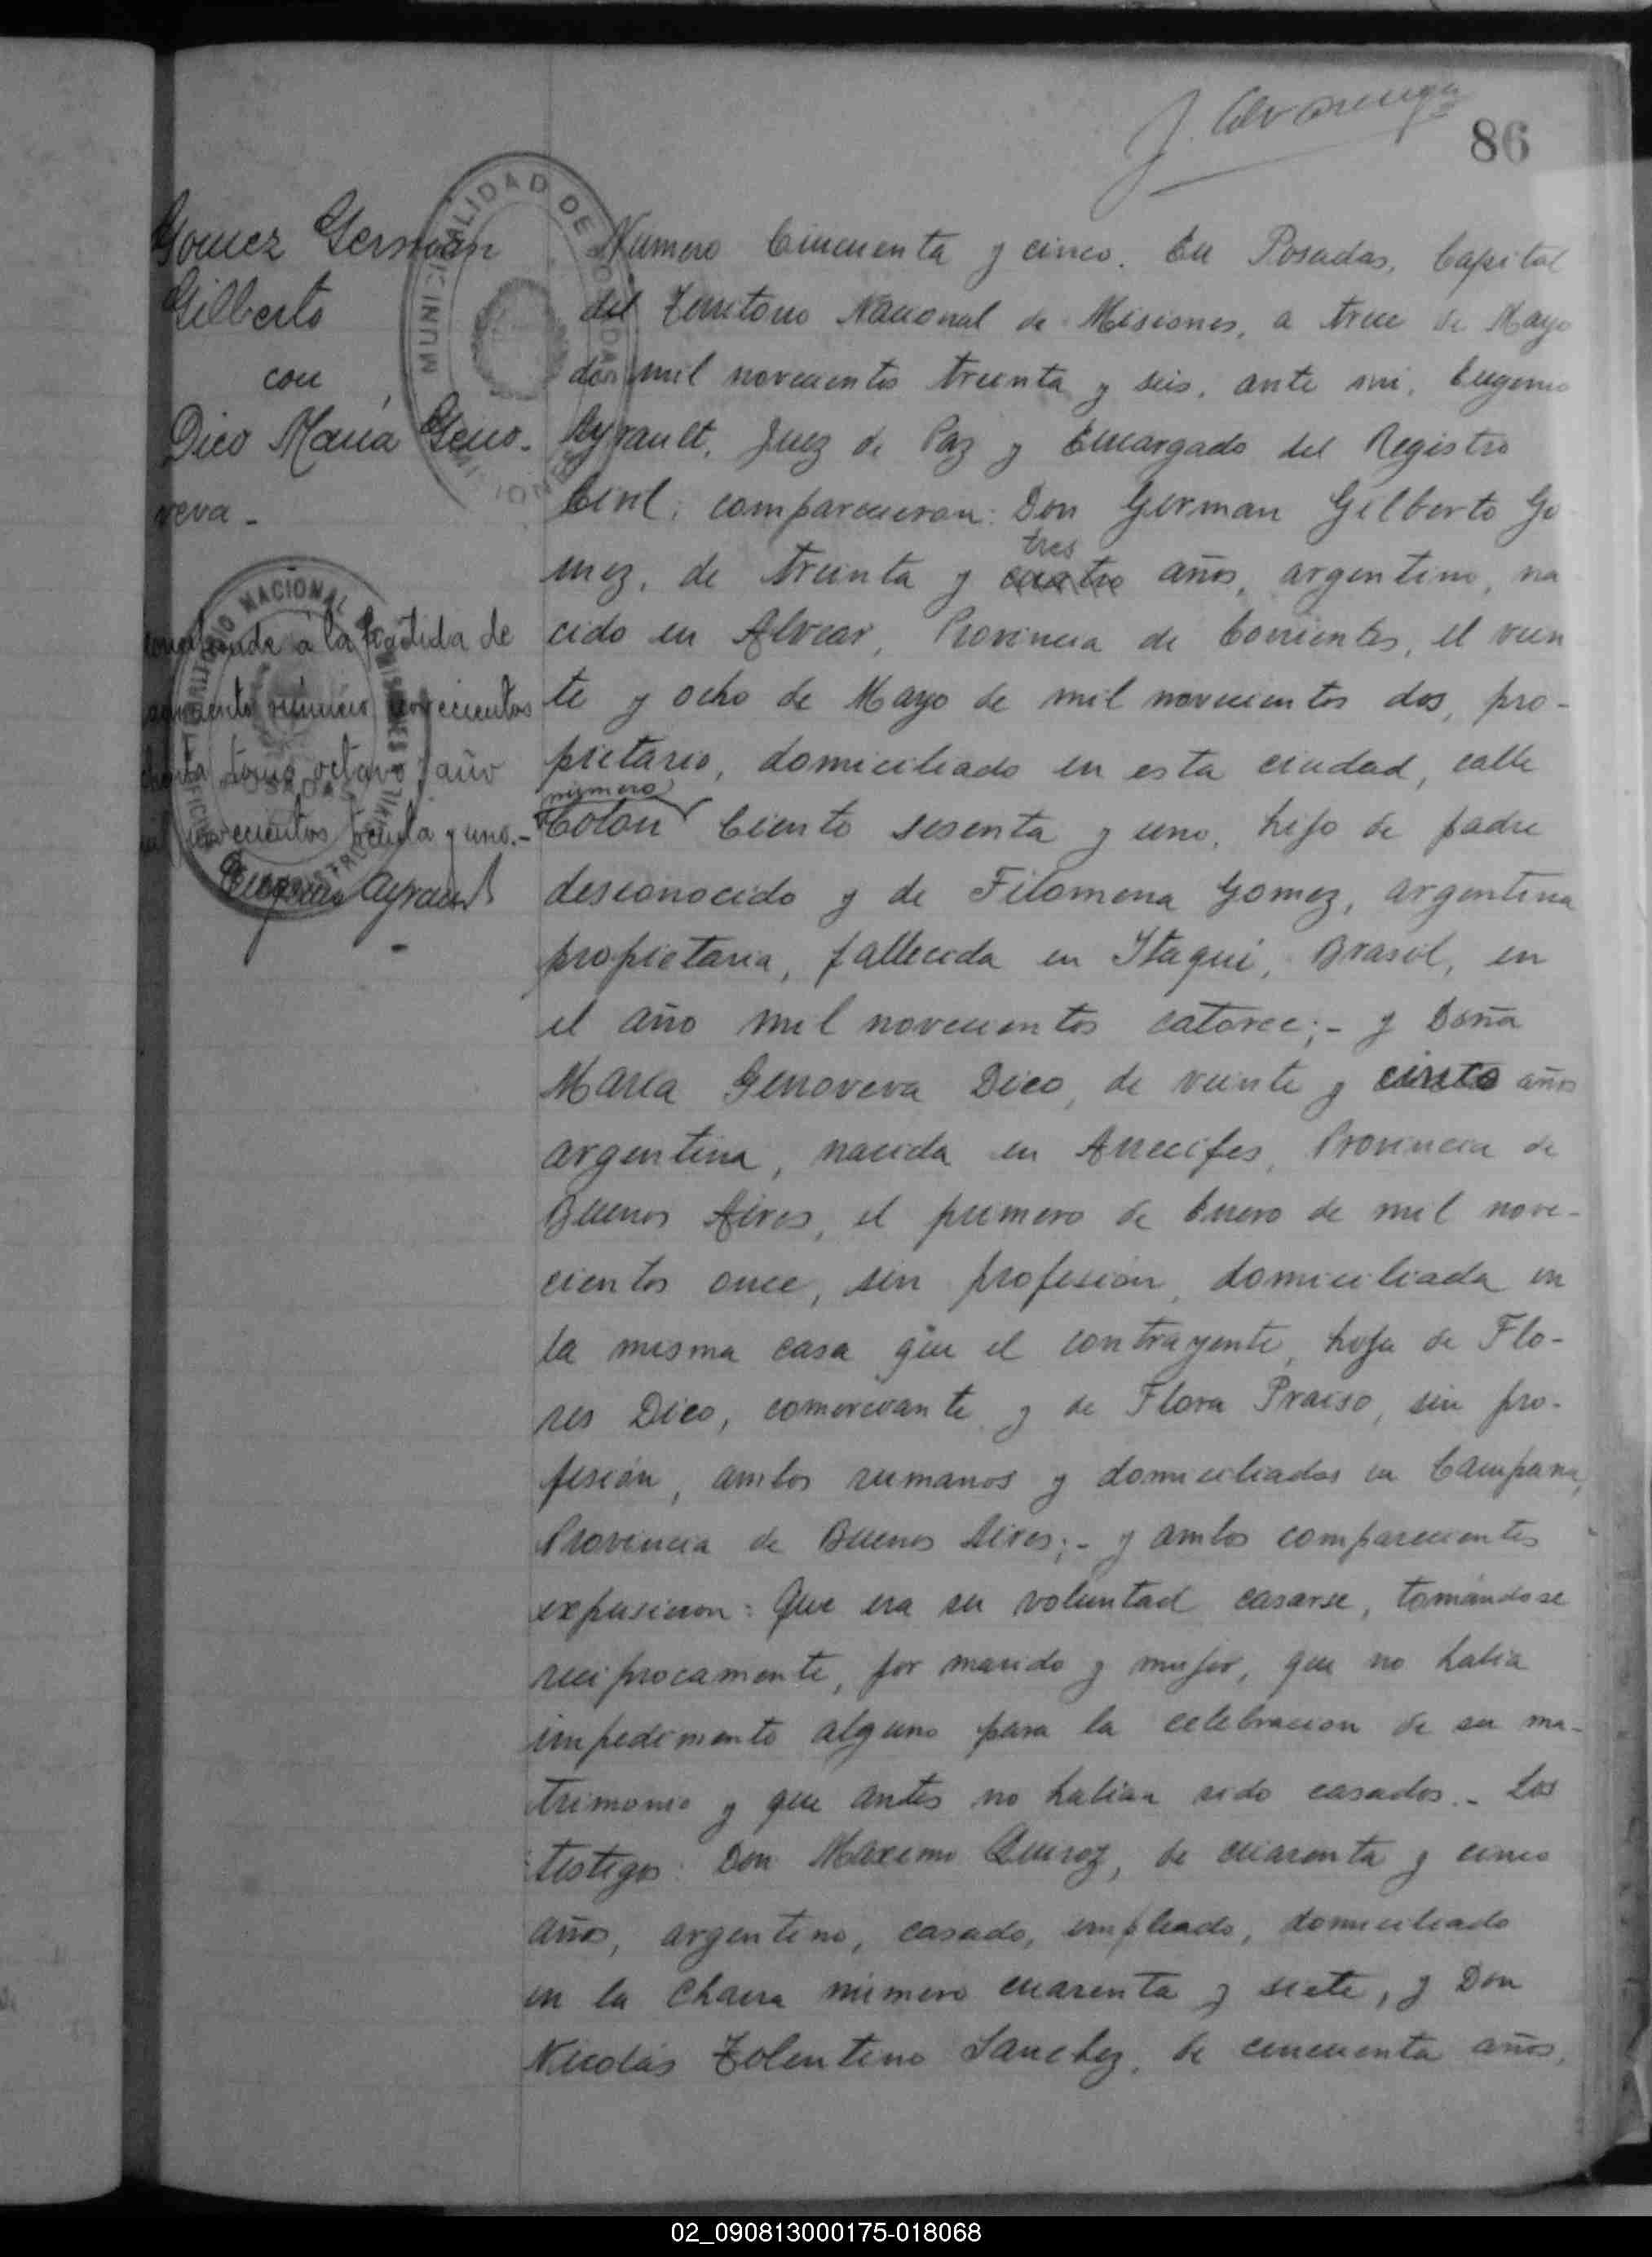 J. Alvarenga
86
Gomez German
Gilberto
con
Dico María Geno-
veva -
MUNICIPALIDAD DE POSADAS
MISIONES
TERRITORIO NACIONAL DE MISIONES
POSADAS
a la Partida de
número novecientos
tomo octavo, año
novecientos treinta y uno.-
Eugenio Ayrault
Numero Cincuenta y cinco. En Posadas, Capital
del Territorio Nacional de Misiones, a trece de Mayo
de mil novecientos treinta y seis, ante mi, Eugenio
Ayrault, Juez de Paz y Encargado del Registro
Civil, comparecieron: Don German Gilberto Go
tres
mez, de treinta y cuatro años, argentino, na
cido en Alvear, Provincia de Corrientes, el vein
te y ocho de Mayo de mil novecientos dos, pro-
pietario, domiciliado en esta ciudad, calle
número
Colon Ciento sesenta y uno, hijo de padre
desconocido y de Filomena Gomez, argentina
propietaria, fallecida en Itaqui, Brasil, en
el año mil novecientos catorce;- y Doña
María Genoveva Dico, de veinte y cinco años
argentina, nacida en Arrecifes, Provincia de
Buenos Aires, el primero de Enero de mil nove-
cientos once, sin profesion, domiciliada en
la misma casa que el contrayente, hija de Flo-
res Dico, comerciante y de Flora Praiso, sin pro-
fesión, ambos rumanos y domiciliados en Campana,
Provincia de Buenos Aires;- y ambos comparecientes
expusieron: Que era su voluntad casarse, tomándose
reciprocamente, por marido y mujer, que no habia
impedimento alguno para la celebracion de su ma-
trimonio y que antes no habian sido casados.- Los
testigos: Don Maximo Quiroz, de cuarenta y cinco
años, argentino, casado, empleado, domiciliado
en la Chacra número cuarenta y siete, y Don
Nicolás Tolentino Sanchez, de cincuenta años,
02_090813000175-018068